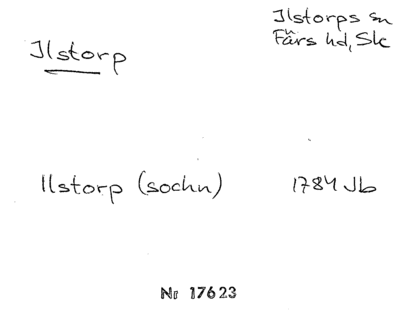 Ilstorp
Ilstorps sn
Färs hd, Sk
Ilstorp (sochn)
1784 Jb
Nr 17623